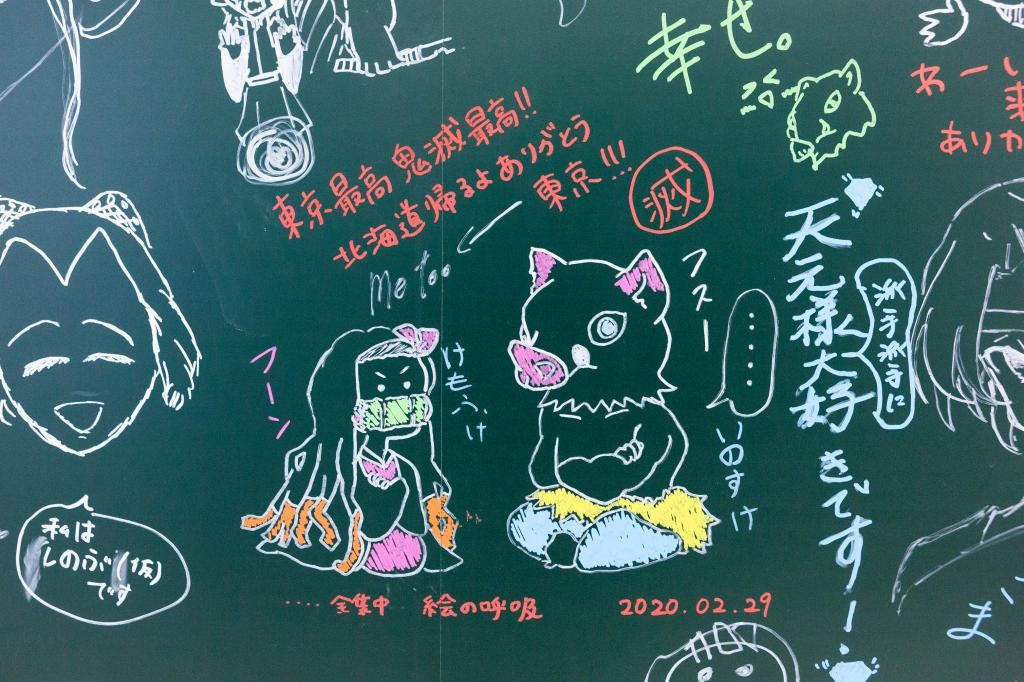 幸せ。
わーい
ありが
東京最高鬼滅最高!!
北海道帰るよありがとう
東京!!!
滅
me too
フスー
天元様大好きです!
派手派手に
フーン
けもふけ
......
いのすけ
私は
しのぶ(仮)
です
....全集中 絵の呼吸
2020.02.29
ま